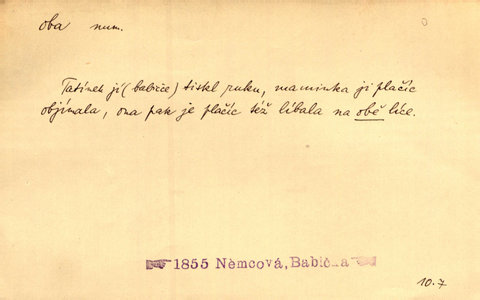 oba num.
Tatínek jí (babičce) tiskl ruku, maminka ji plačíc
objímala, ona pak je plačíc též líbala na obě líce.
1855 Němcová, Babička
10.7